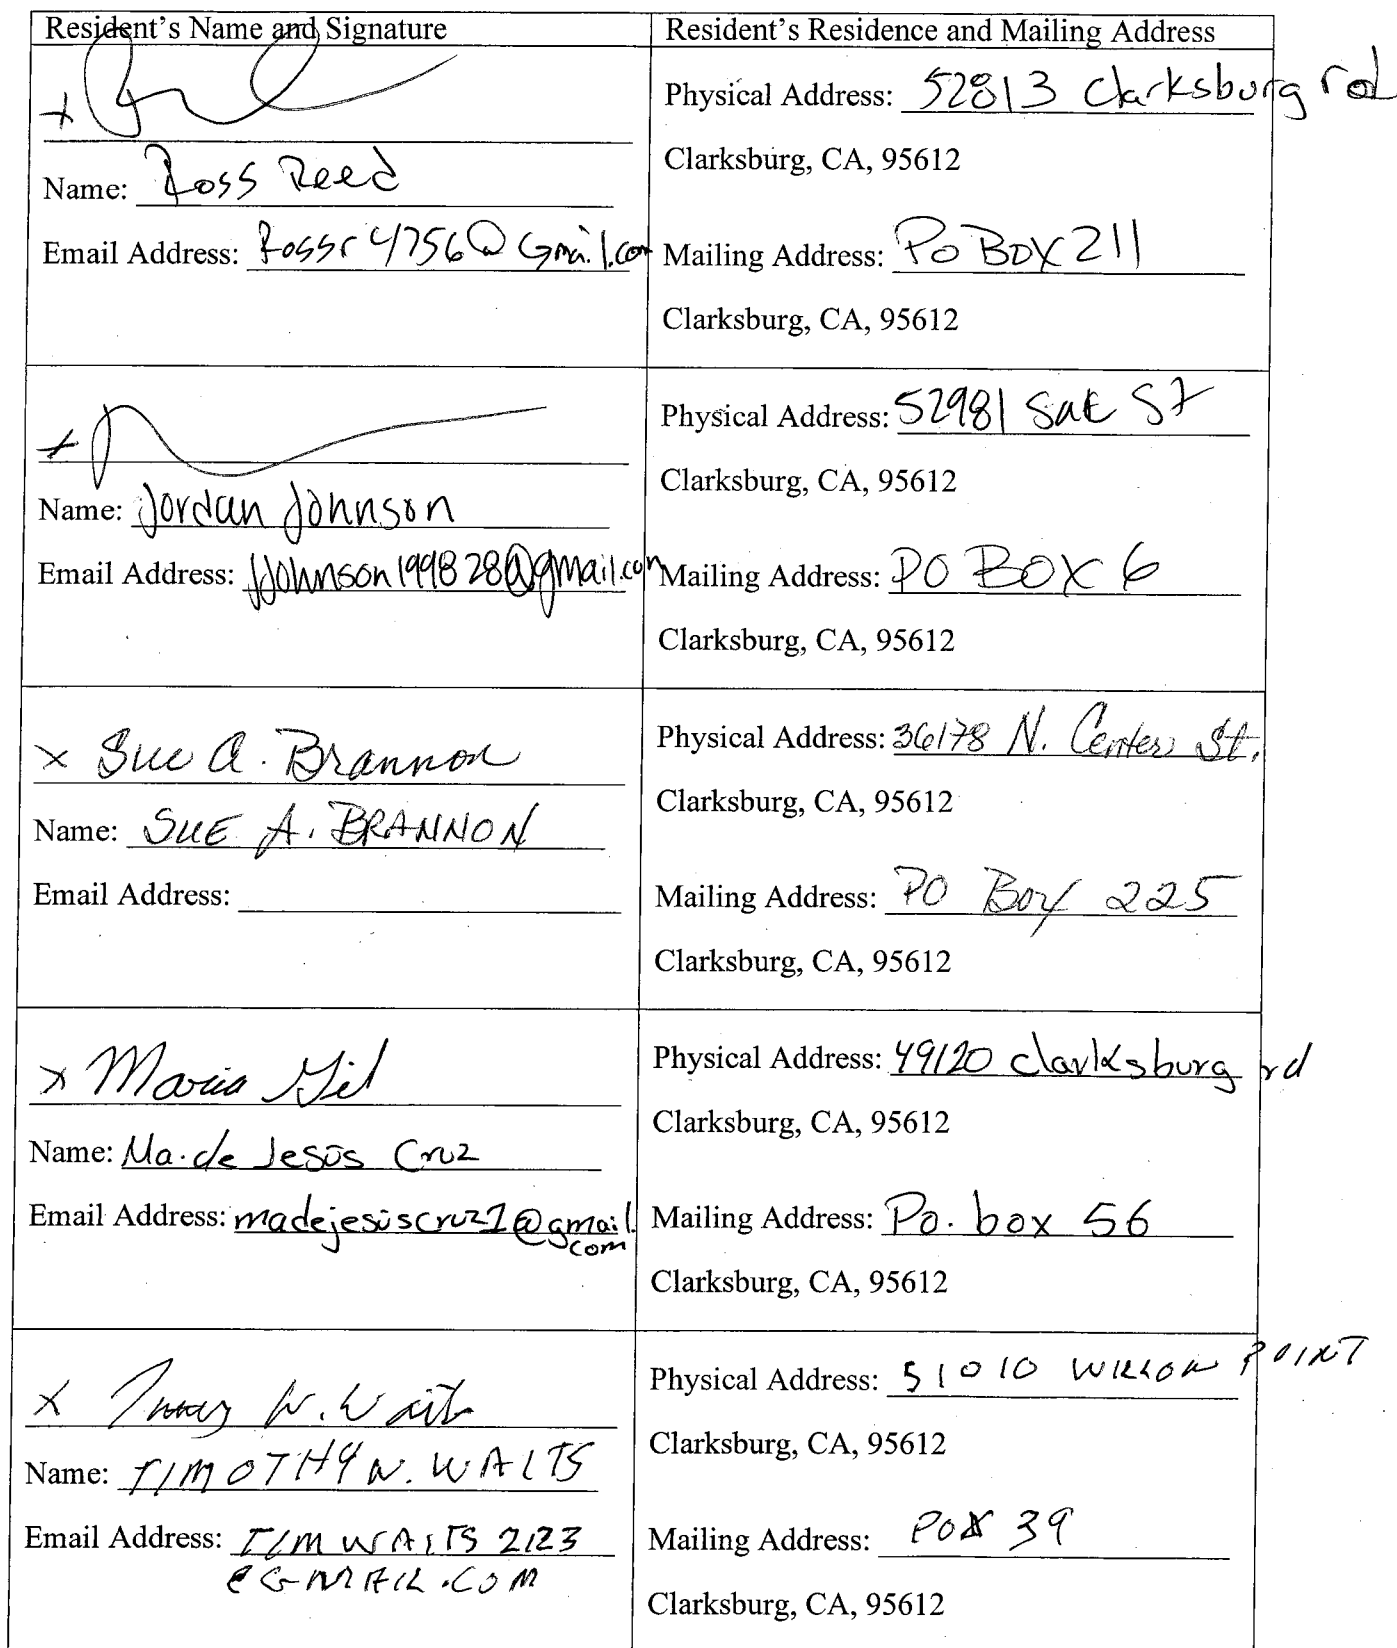 Resident's Name and Signature
Resident's Residence and Mailing Address
x
Name: Ross Reed
Email Address: Rossr4756@Gmail.com
Physical Address: 52813 Clarksburg rd
Clarksburg, CA, 95612
Mailing Address: PO BOX 211
Clarksburg, CA, 95612
x
Name: Jordan Johnson
Email Address: JJohnson199828@gmail.com
Physical Address: 52981 Sac St
Clarksburg, CA, 95612
Mailing Address: PO BOX 6
Clarksburg, CA, 95612
x Sue A. Brannon
Name: SUE A. BRANNON
Email Address:
Physical Address: 36178 N. Center St.
Clarksburg, CA, 95612
Mailing Address: PO Box 225
Clarksburg, CA, 95612
x Maria Gil
Name: Ma. de Jesús Cruz
Email Address: madejesuscruz1@gmail.
com
Physical Address: 49120 Clarksburg rd
Clarksburg, CA, 95612
Mailing Address: Po. box 56
Clarksburg, CA, 95612
x N. Waits
Name: TIMOTHY N. WAITS
Email Address: TIMWAITS2123
@GMAIL.COM
Physical Address: 51010 WILLOW POINT
Clarksburg, CA, 95612
Mailing Address: POX 39
Clarksburg, CA, 95612